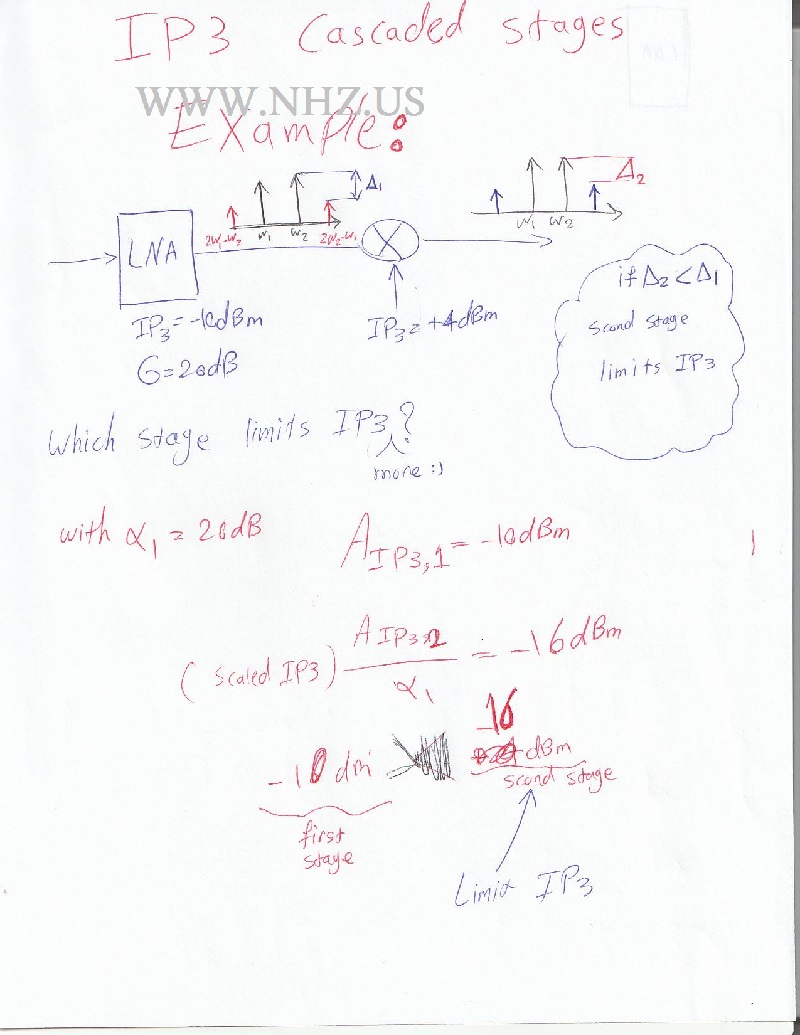 IP3 Cascaded stages
WWW.NHZ.US
Example:
Δ1
Δ2
LNA
2W1-W2 W1 W2 2W2-W1
W1 W2
IP3=-10dBm
G=20dB
IP3=+4dBm
if Δ2<Δ1
Scond stage
limits IP3
Which stage limits IP3?
more :)
with α1 = 20dB
AIP3,1=-10dBm
(Scaled IP3) AIP32 = -16dBm
α1
-16
-10 dm
dBm
first
stage
scond stage
Limit IP3